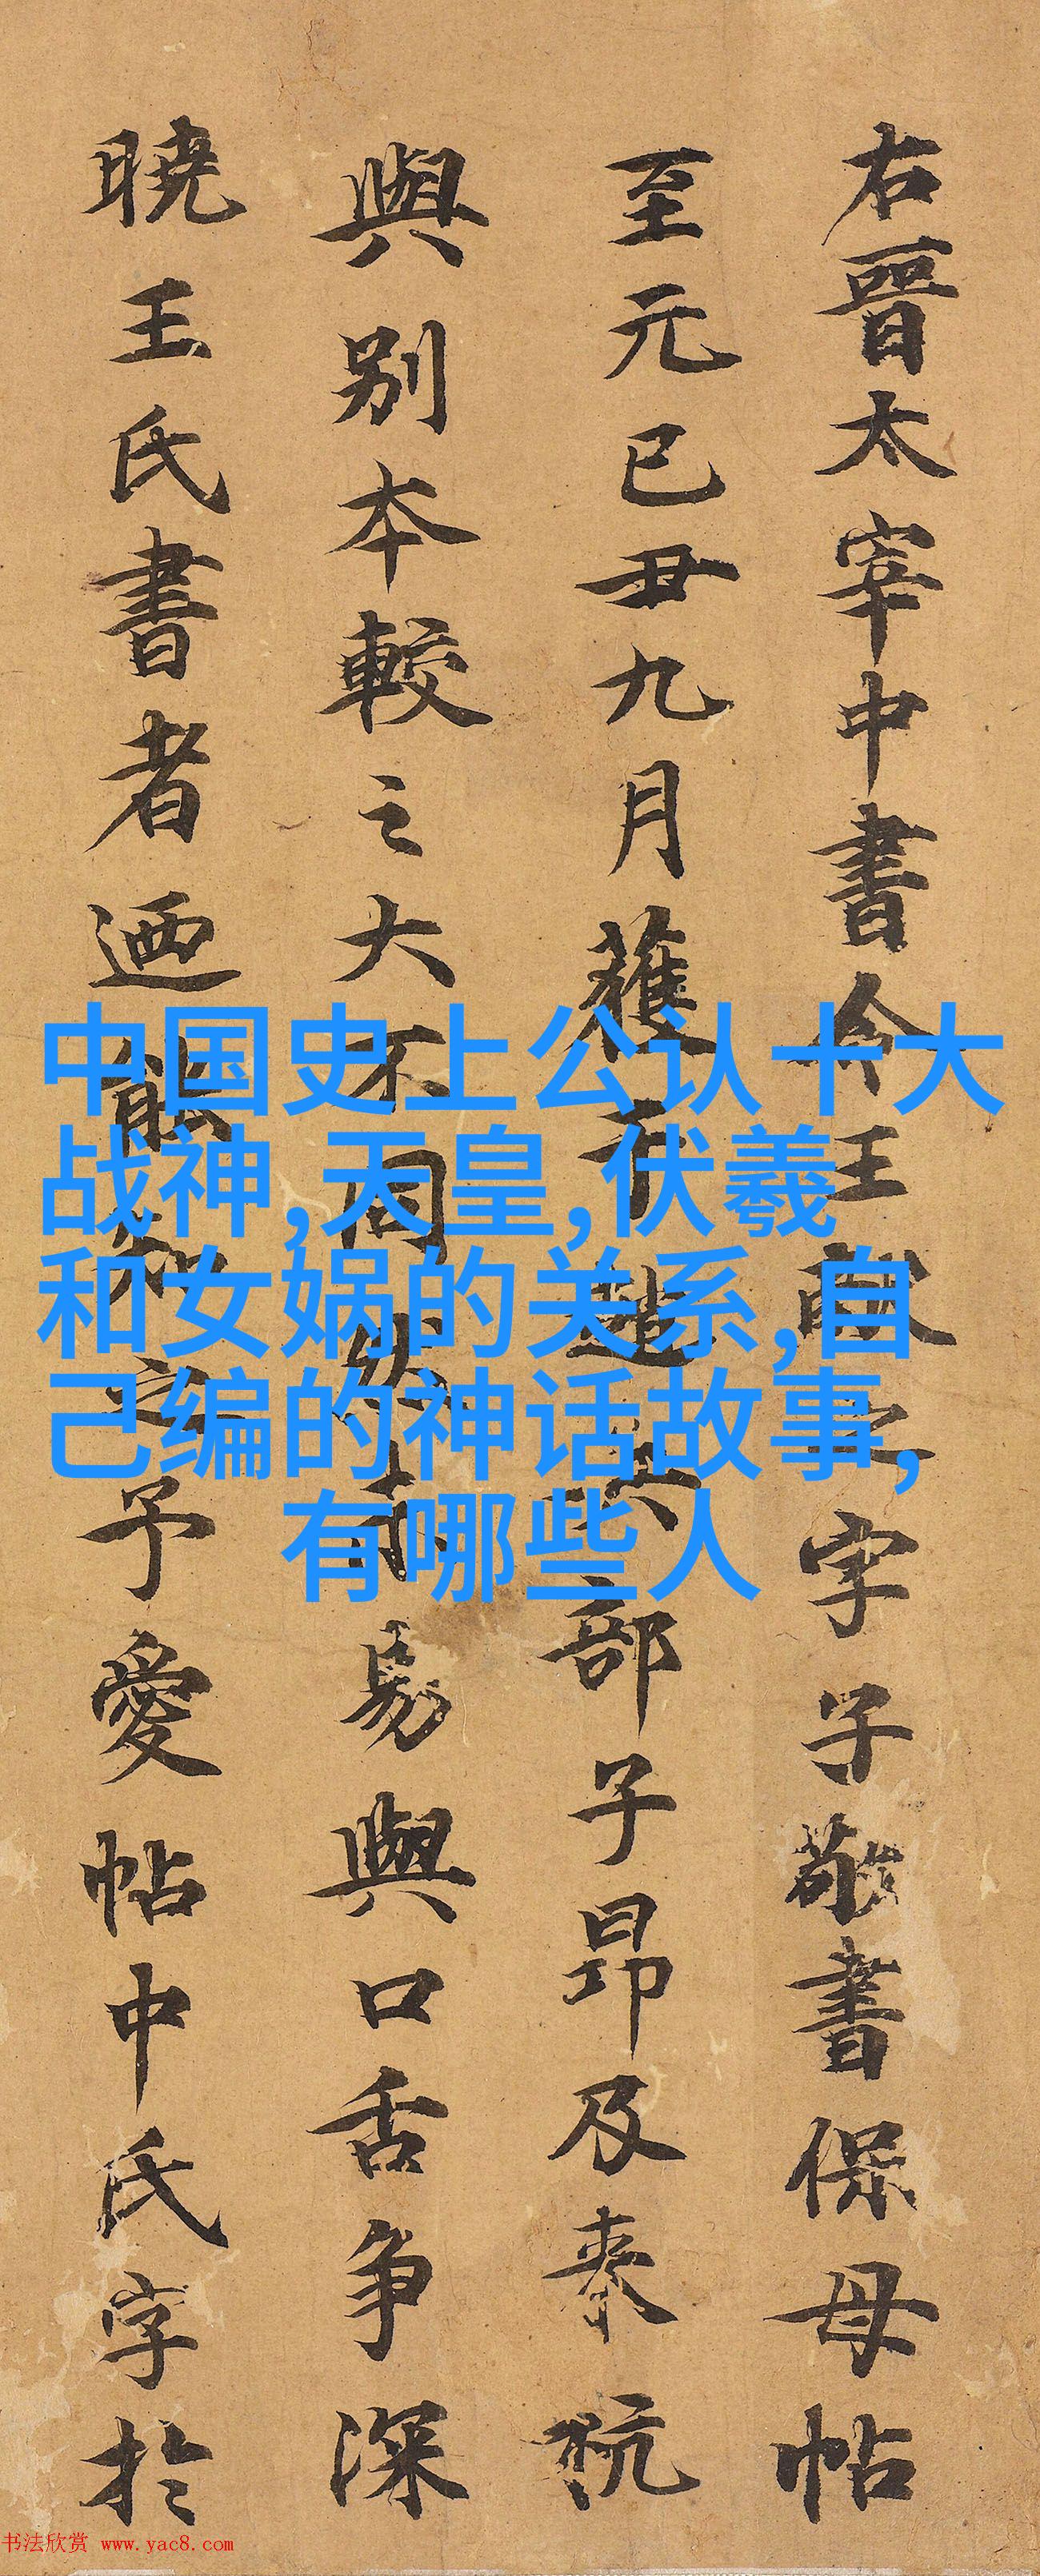 右晉太宰中書令王獻之字子敬書保母帖
至元己丑九月蒦于趙兵部子昂及來杭
與別本較之大不同然未易與口舌争深
曉王氏書者迺能知之予愛帖中氏字於
中国史上公认十大
战神,天皇,伏羲
和女娲的关系,自
己编的神话故事,
有哪些人
书法欣赏 www.yac8.com